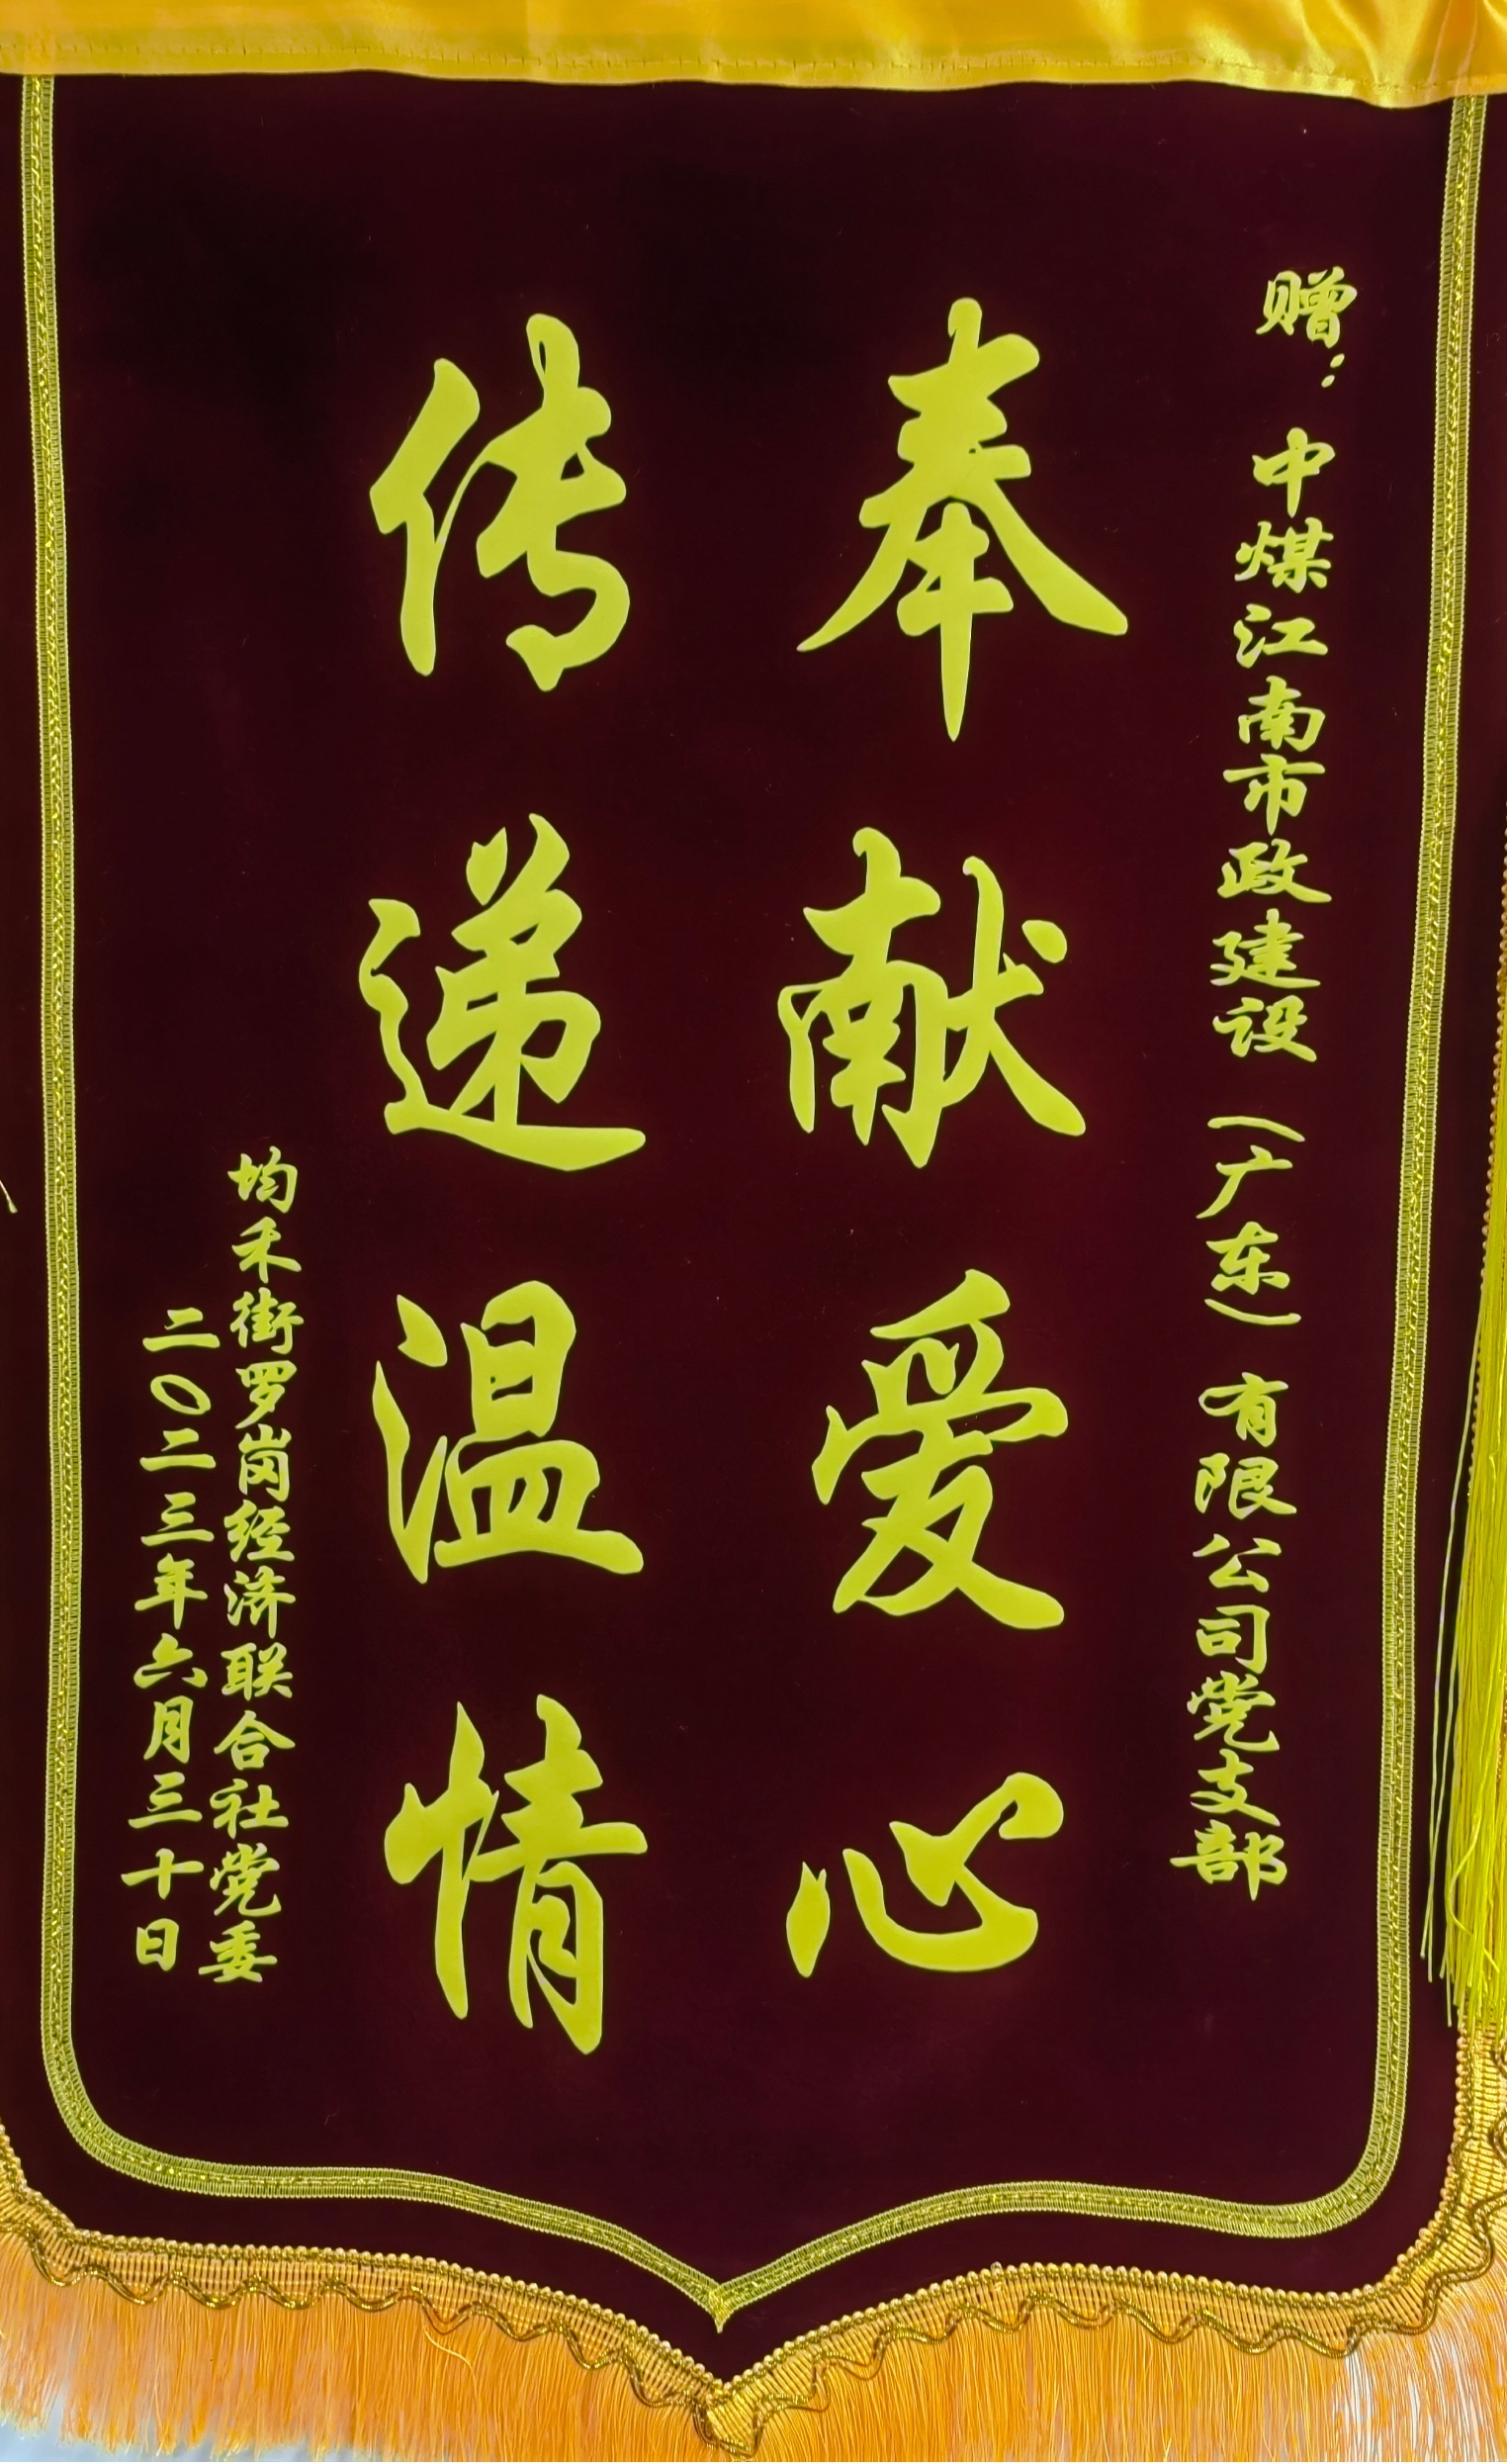 赠：中煤江南市政建设（广东）有限公司党支部
奉献爱心
传递温情
均禾街罗岗经济联合社党委
二〇二三年六月三十日